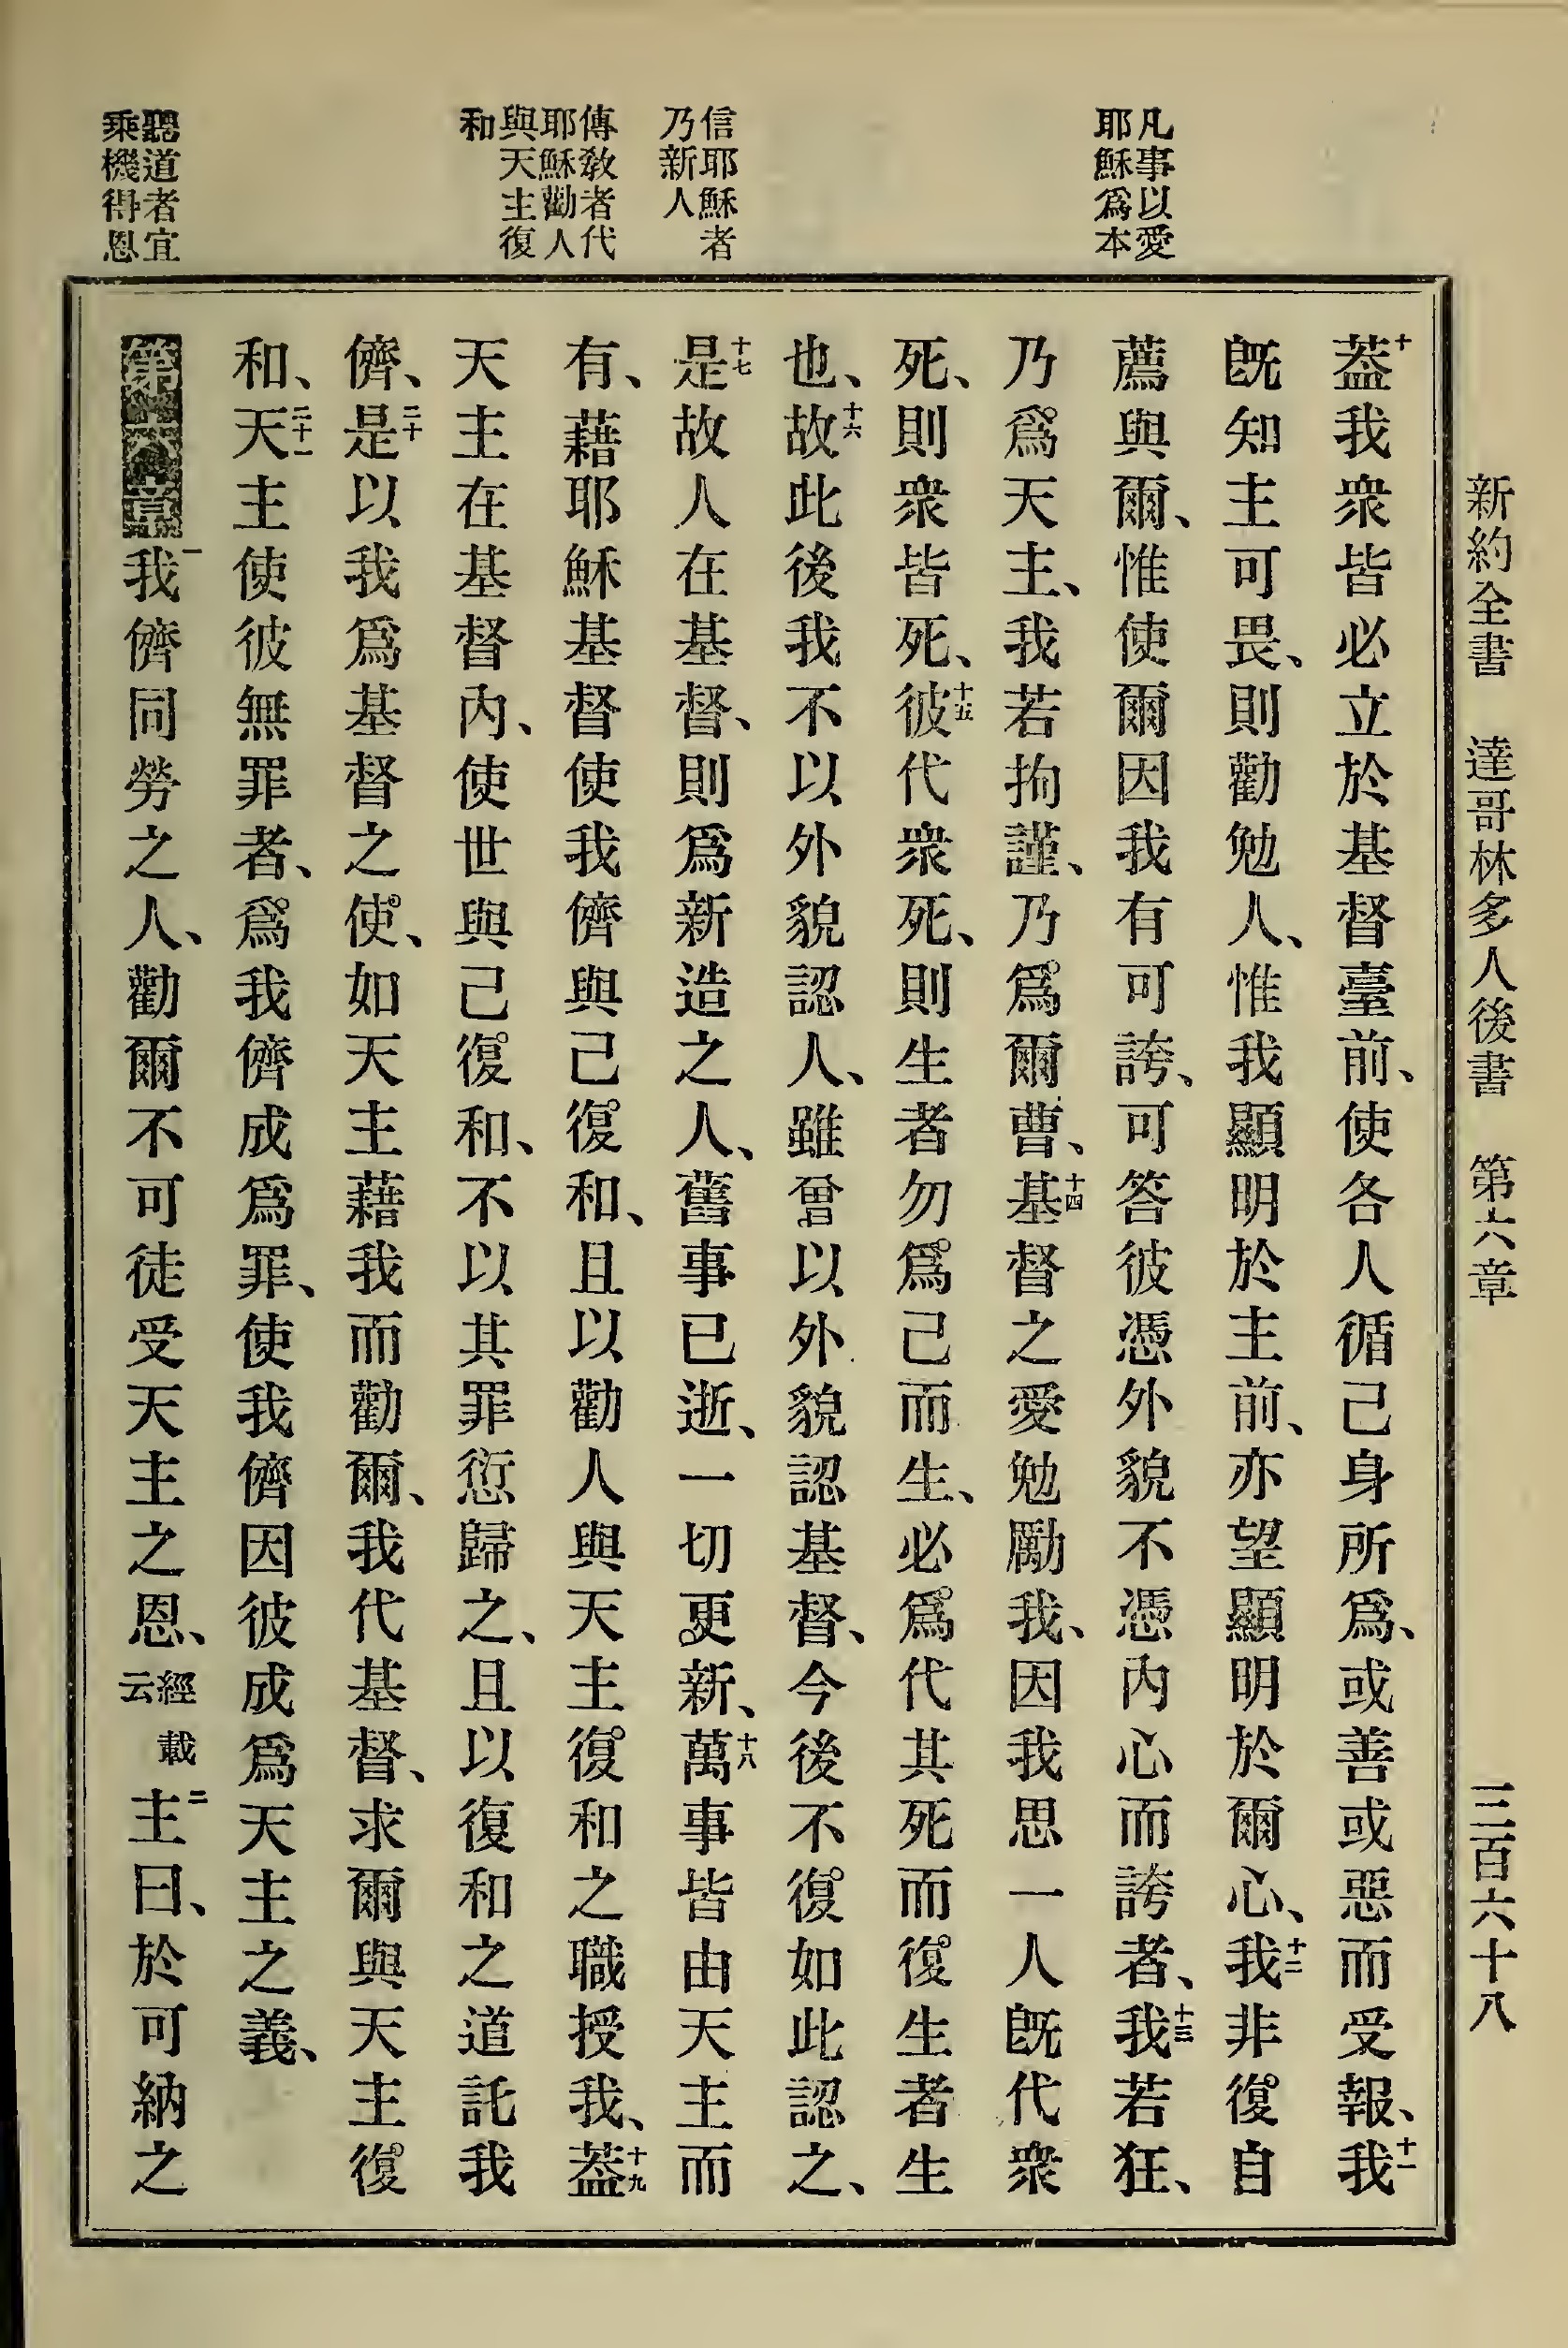 新約全書 達哥林多人後書 第六章 三百六十八
凡事以愛
耶穌爲本
信耶穌者
乃新人
傳敎者代
耶穌勸人
與天主復
和
聽道者宜
乘機得恩
十蓋我衆皆必立於基督臺前、使各人循己身所爲、或善或惡而受報、十一我
旣知主可畏、則勸勉人、惟我顯明於主前、亦望顯明於爾心、十二我非復自
薦與爾、惟使爾因我有可誇、可答彼憑外貌不憑內心而誇者、十三我若狂、
乃爲天主、我若拘謹、乃爲爾曹、十四基督之愛勉勵我、因我思一人旣代衆
死、則衆皆死、十五彼代衆死、則生者勿爲己而生、必爲代其死而復生者生
也、十六故此後我不以外貌認人、雖曾以外貌認基督、今後不復如此認之、
十七是故人在基督、則爲新造之人、舊事已逝、一切更新、十八萬事皆由天主而
有、藉耶穌基督使我儕與己復和、且以勸人與天主復和之職授我、十九蓋
天主在基督內、使世與己復和、不以其罪愆歸之、且以復和之道託我
儕、二十是以我爲基督之使、如天主藉我而勸爾、我代基督、求爾與天主復
和、二十一天主使彼無罪者、爲我儕成爲罪、使我儕因彼成爲天主之義、
第六章一我儕同勞之人、勸爾不可徒受天主之恩、經載云二主曰、於可納之